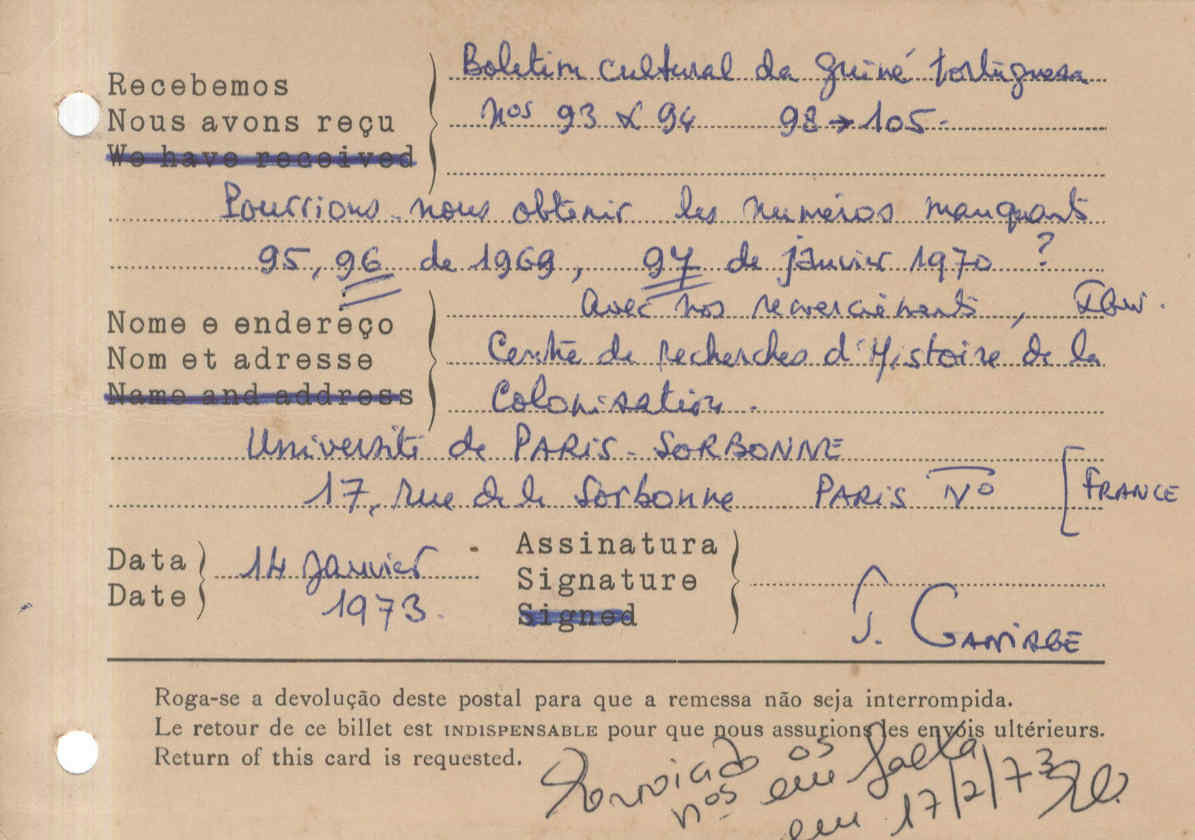 Recebemos
Nous avons reçu
We have received
Boletim cultural da Guiné Portuguesa
nos 93 & 94 98 → 105.
Pourrions-nous obtenir les numéros manquants
95, 96 de 1969, 97 de janvier 1970 ?
Avec nos remerciements,
Nome e endereço
Nom et adresse
Name and address
Centre de recherches d'Histoire de la
Colonisation.
Université de PARIS-SORBONNE
17, rue de la Sorbonne PARIS Vº [FRANCE
Data
Date
14 Janvier
1973.
Assinatura
Signature
Signed
J. GANIAGE
Roga-se a devolução deste postal para que a remessa não seja interrompida.
Le retour de ce billet est INDISPENSABLE pour que nous assurions les envois ultérieurs.
Return of this card is requested.
os
nos em falta
em 17/2/73